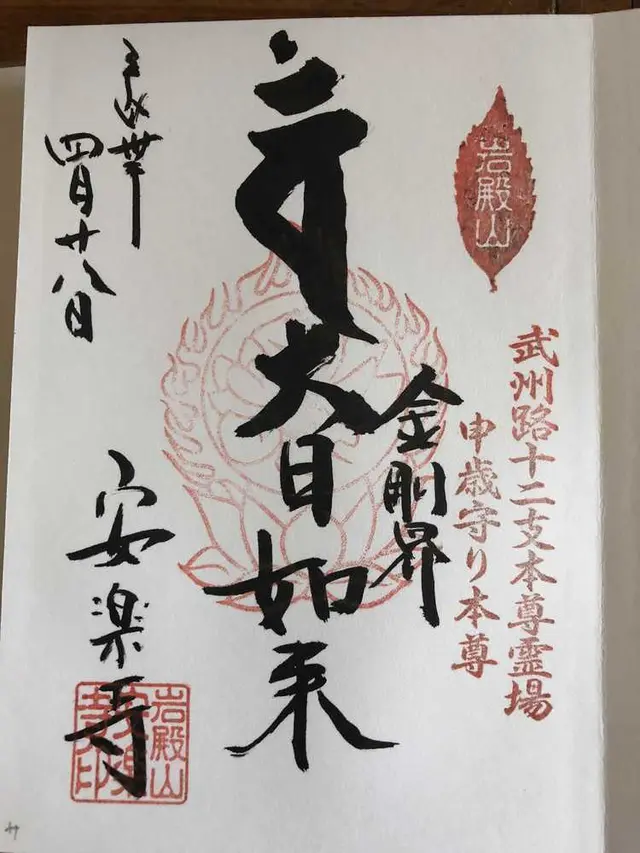 岩殿山
武州路十二支本尊霊場
申歳守り本尊
金剛界
大日如来
平成丗年
四月廿八日
安楽寺
岩殿山
安楽
寺印